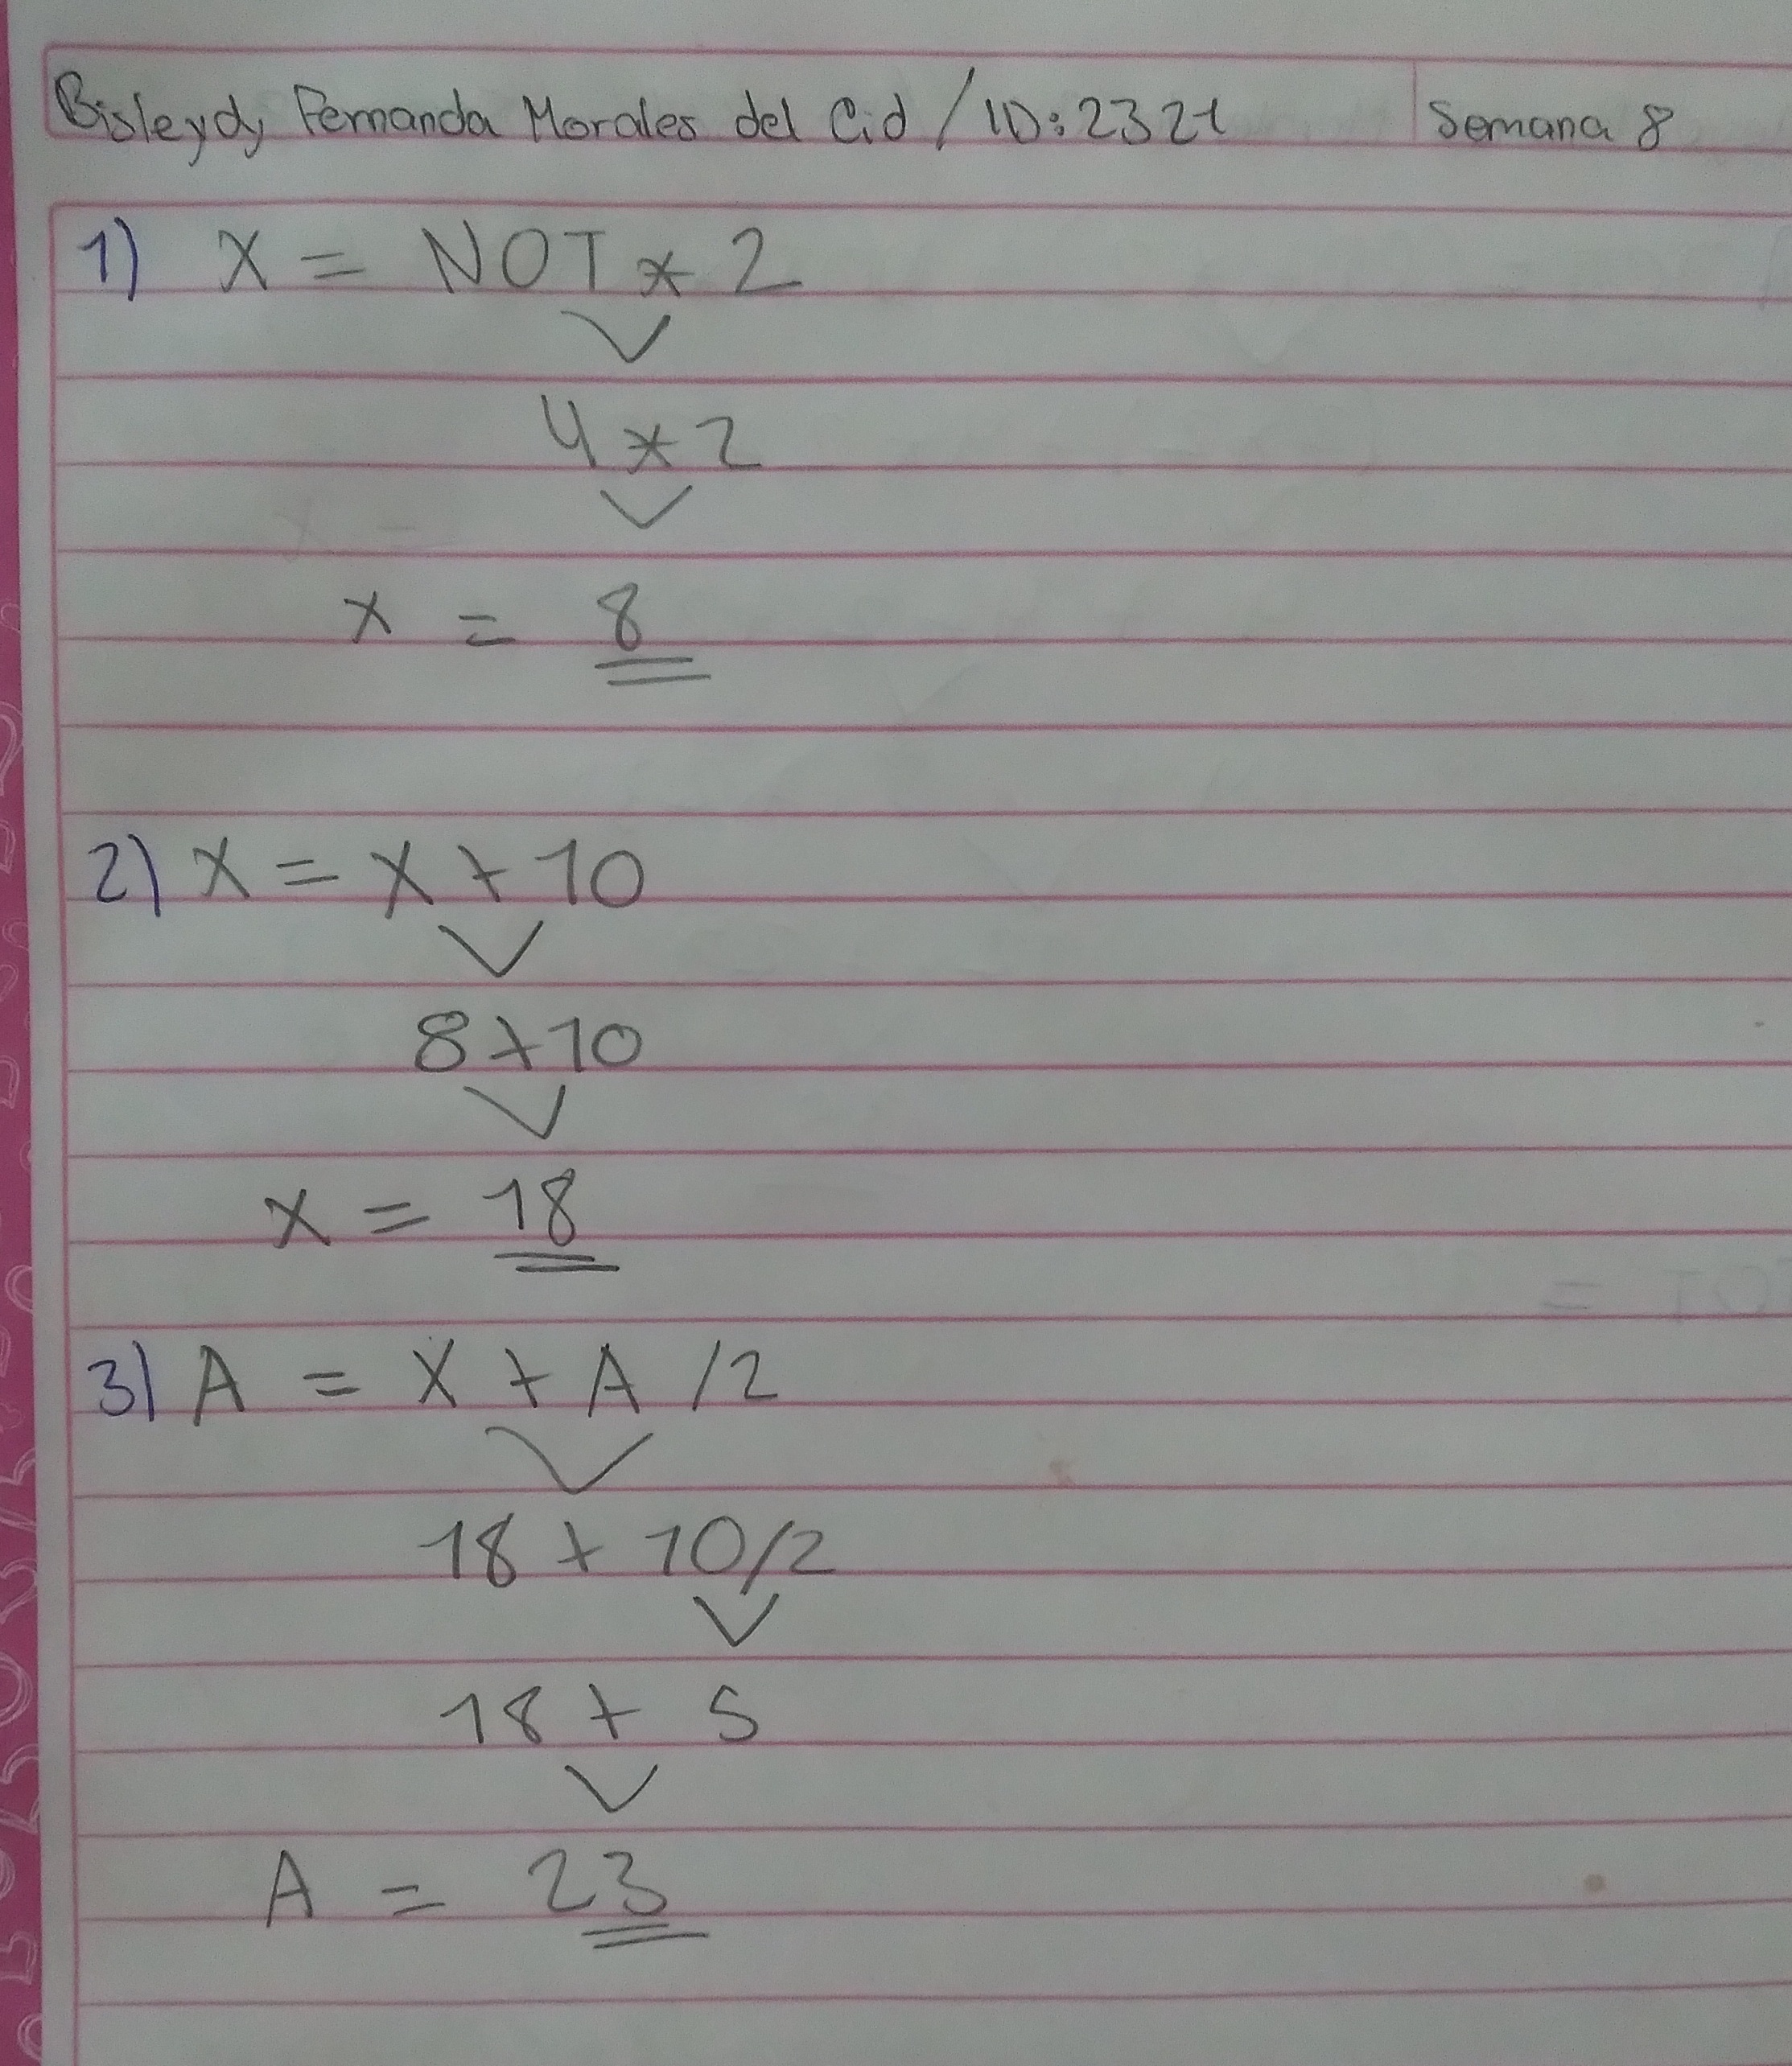 Bisleydy Fernanda Morales del Cid / ID: 2321 Semana 8
1) X = NOT * 2
4 * 2
x = 8
2) X = X + 10
8 + 10
x = 18
3) A = X + A / 2
18 + 10/2
18 + 5
A = 23